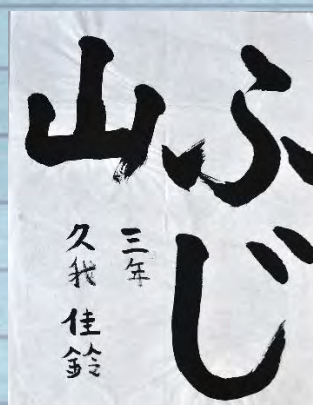 ふじ
山
三年
久我佳鈴